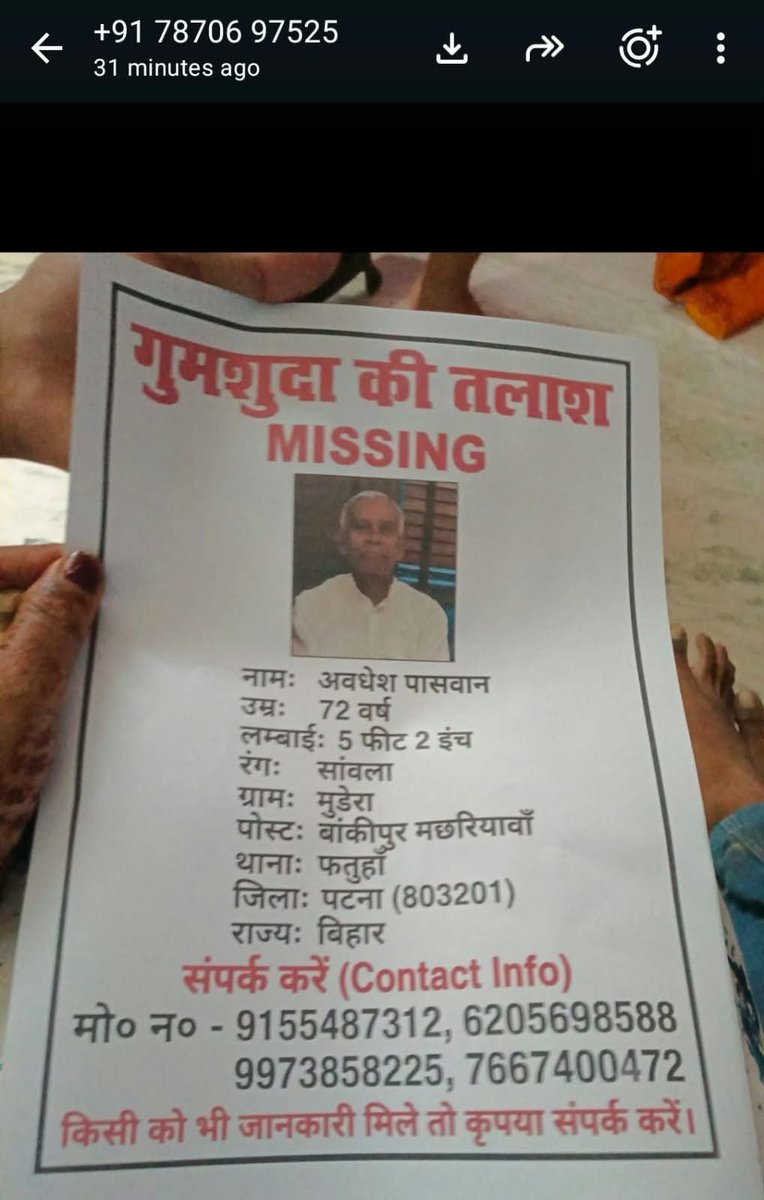 +91 78706 97525
31 minutes ago
गुमशुदा की तलाश
MISSING
नामः अवधेश पासवान
उम्रः 72 वर्ष
लम्बाईः 5 फीट 2 इंच
रंगः सांवला
ग्रामः मुडेरा
पोस्टः बांकीपुर मछरियावाँ
थानाः फतुहाँ
जिलाः पटना (803201)
राज्यः बिहार
संपर्क करें (Contact Info)
मो० न० - 9155487312, 6205698588
9973858225, 7667400472
किसी को भी जानकारी मिले तो कृपया संपर्क करें।